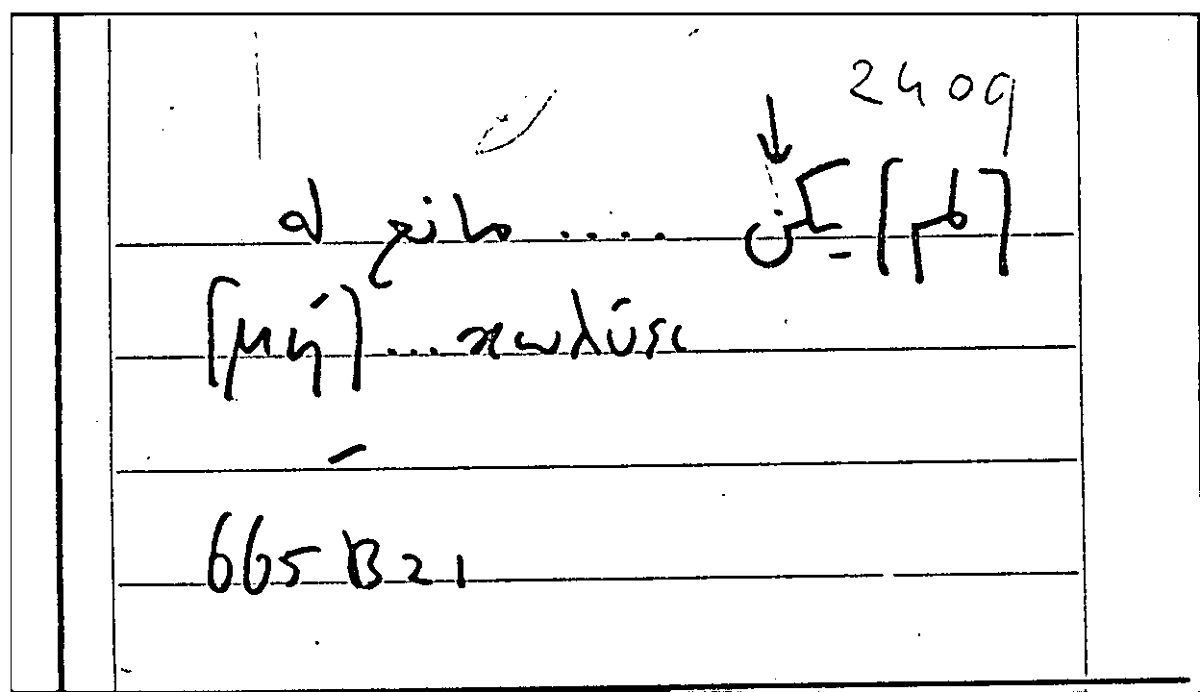 2409
[لم] يكن .... مانع له
[μή] ... κωλύσε
665 B 21